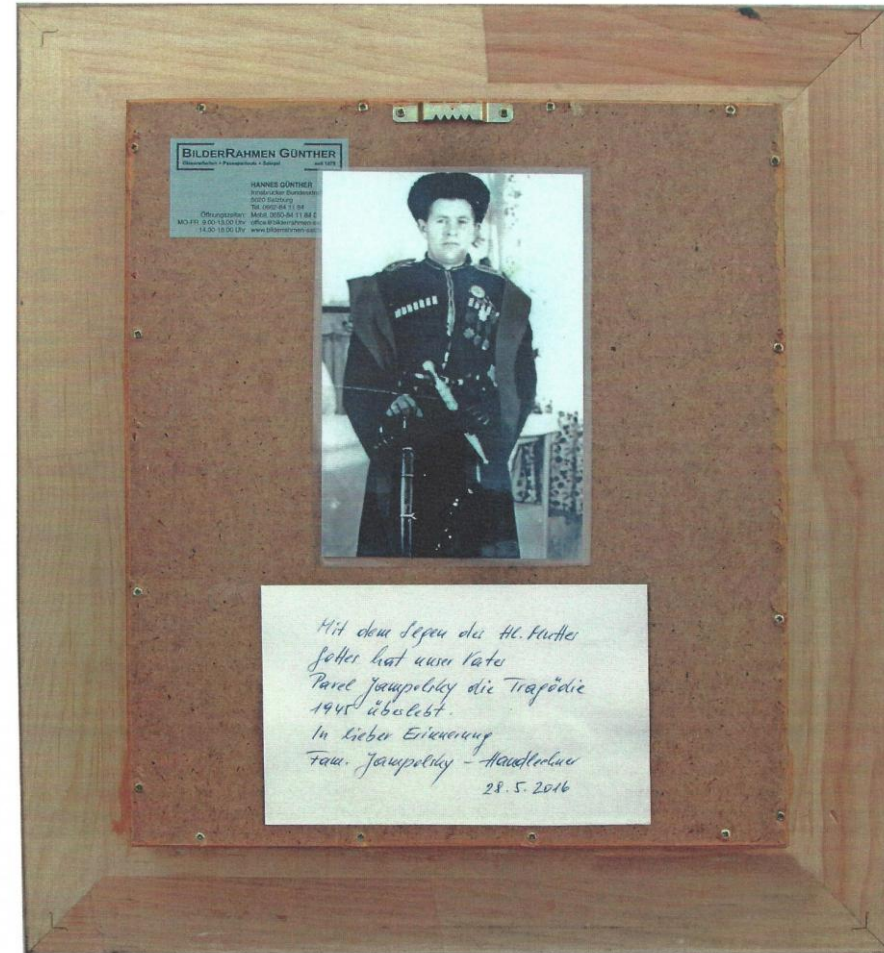 BILDERRAHMEN GÜNTHER
seit 1978
HANNES GÜNTHER
Innsbrucker Bundesstr
5020 Salzburg
Tel. 0662-84 11 84
Öffnungszeiten: Mobil. 0650-84 11 84
MO-FR. 9.00-13.00 Uhr office@bilderrahmen-
14.00-18.00 Uhr www.bilderrahmen-
Mit dem Segen der Hl. Mutter
Gottes hat unser Vater
Pavel Jampolsky die Tragödie
1945 überlebt.
In lieber Erinnerung
Fam. Jampolsky - Handlechner
28.5.2016